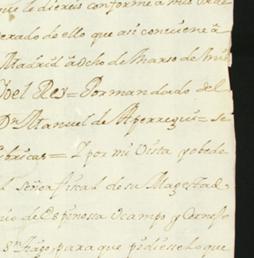 que le diereis conforme a mis orde
dexado de ello que asi conviene â
Madrid â Ocho de Marzo de mil
Yo el Rey = Por mandado del
Dn. Manuel de Aperregui = Se
bricas = Y por mi vista y obede
l Señor fiscal de su Magestad,
io de Espinossa Ocampo y Cornejo
para que pidiese lo que